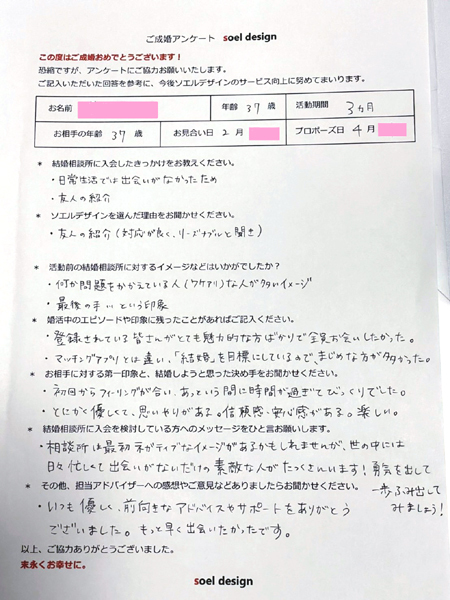 ご成婚アンケート soel design
この度はご成婚おめでとうございます！
恐縮ですが、アンケートにご協力お願いいたします。
ご記入いただいた回答を参考に、今後ソエルデザインのサービス向上に努めてまいります。
お名前 年齢 37 歳 活動期間 3ヵ月
お相手の年齢 37 歳 お見合い日 2月 プロポーズ日 4月
* 結婚相談所に入会したきっかけをお教えください。
・日常生活では出会いがなかったため
・友人の紹介
* ソエルデザインを選んだ理由をお聞かせください。
・友人の紹介(対応が良く、リーズナブルと聞き)
* 活動前の結婚相談所に対するイメージなどはいかがでしたか？
・何か問題をかかえている人(ワケアリ)な人が多いイメージ
・最後の手段という印象
* 婚活中のエピソードや印象に残ったことがあればご記入ください。
・登録されている皆さんがとても魅力的な方ばかりで全員お会いしたかった。
・マッチングアプリとは違い、「結婚」を目標にしているので、まじめな方が多かった。
* お相手に対する第一印象と、結婚しようと思った決め手をお聞かせください。
・初回からフィーリングが合い、あっという間に時間が過ぎてびっくりでした。
・とにかく優しくて、思いやりがある。信頼感・安心感がある。楽しい。
* 結婚相談所に入会を検討している方へのメッセージをひと言お願いします。
・相談所は最初ネガティブなイメージがあるかもしれませんが、世の中には
日々忙しくて出会いがないだけの素敵な人がたっくさんいます！勇気を出して
一歩ふみ出して
みましょう！
* その他、担当アドバイザーへの感想やご意見などありましたらお聞かせください。
・いつも優しく、前向きなアドバイスやサポートをありがとう
ございました。もっと早く出会いたかったです。
以上、ご協力ありがとうございました。
末永くお幸せに。
soel design